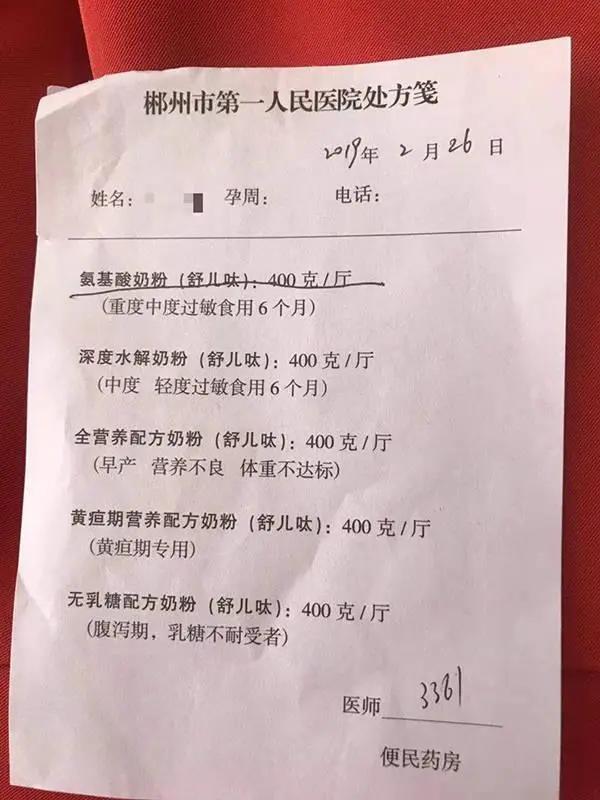 郴州市第一人民医院处方笺
2019年 2 月 26 日
姓名: 孕周: 电话:
氨基酸奶粉 (舒儿呔): 400 克 / 厅
(重度中度过敏食用 6 个月)
深度水解奶粉 (舒儿呔): 400 克 / 厅
(中度 轻度过敏食用 6 个月)
全营养配方奶粉 (舒儿呔): 400 克 / 厅
(早产 营养不良 体重不达标)
黄疸期营养配方奶粉 (舒儿呔): 400 克 / 厅
(黄疸期专用)
无乳糖配方奶粉 (舒儿呔): 400 克 / 厅
(腹泻期, 乳糖不耐受者)
医师 3361
便民药房